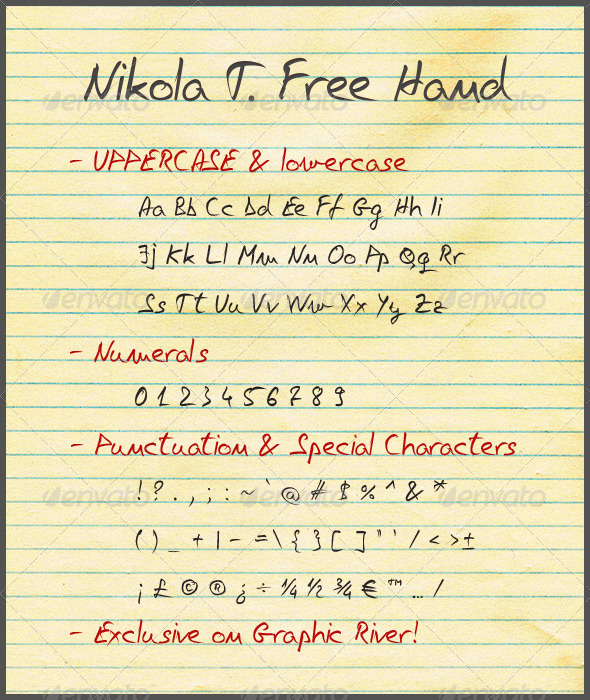 Nikola T. Free Hand
- UPPERCASE & lowercase
Aa Bb Cc Dd Ee Ff Gg Hh Ii
Jj Kk Ll Mm Nn Oo Pp Qq Rr
Ss Tt Uu Vv Ww Xx Yy Zz
- Numerals
0 1 2 3 4 5 6 7 8 9
- Punctuation & Special Characters
! ? . , ; : ~ ` @ # $ % ^ & *
( ) _ + | - = \ { } [ ] " ' / < > ±
¡ £ © ® ¿ ÷ ¼ ½ ¾ € ™ … /
- Exclusive on Graphic River!